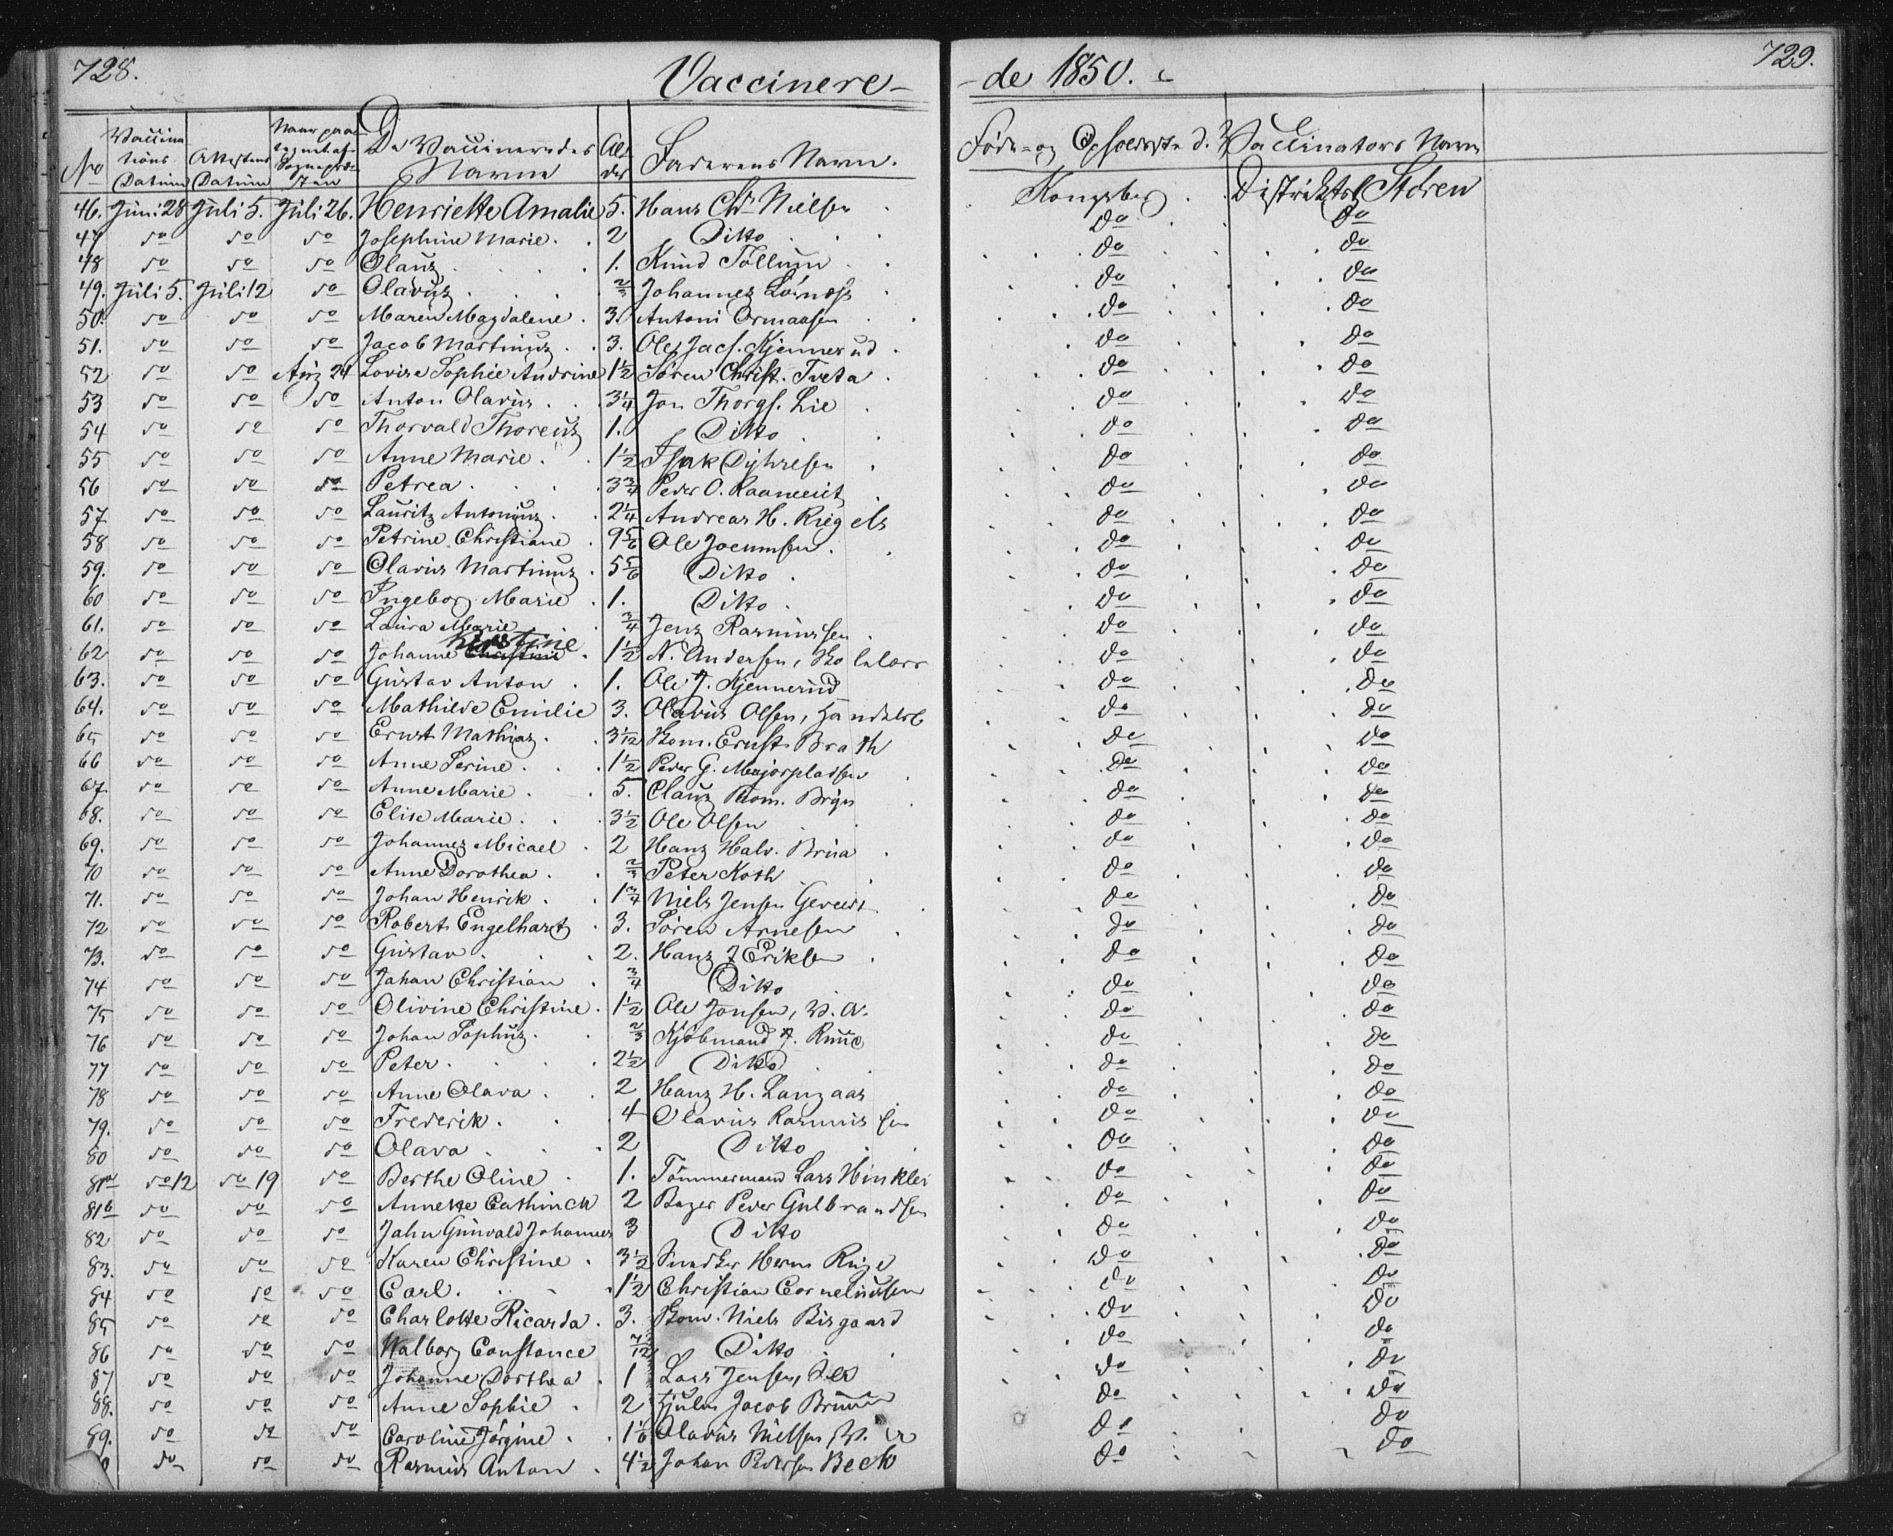 728. Vaccinere- -de 1850. 729.
No Vaccinations Datum Attestens Datum De Vaccineredes Navne Alder Faderens Navn. Føde- og Vaccinators Navn
46. Juni 28 Juli 5. Juli 26. Henriette Amalie 5. Hans Chr Nielsen Kongsberg Distriktsl Støren
47 do do do Josephine Marie. 2 Ditto do do
48 do do do Olaus 1. Knud Tollum do do
49. Juli 5. Juli 12 do Olavus 2/3 Johannes do do
50. do do do Maren Magdalene 3. Antoni Ormaasen do do
51. do do do Jacob Martinus 3. Ole Jacs. Kjennerud do do
52 do do Aug 21 Lovise Sophie Andrine 1 1/2 Søren Christ. Tveta do do
53 do do do Anton Olavus 3 1/4 Jon Thorgs. Lie do do
54 do do do Thorvald Thoreus 1. Ditto do do
55 do do do Anne Marie 1 1/2 Isak Dyhresen do do
56 do do do Petrea 3 3/4 Peder O. do do
57 do do do Lauritz Antonius 2 1/4 Andreas H. Riegels do do
58 do do do Petrine Christiane 9 5/6 Ole Jocumsen. do do
59. do do do Olavus Martinus 5 5/6 Ditto do do
60 do do do Ingeborg Marie 1. Ditto do do
61. do do do Laura Marie 3/4 Jens Rasmussen do do
62 do do do Johanne Kirstine 1 1/2 N. Andersen, do do
63. do do do Gustav Anton 1. Ole J. Kjennerud do do
64. do do do Mathilde Emilie 3. Olavus Olsen, do do
65 do do do Ernst Mathias 3 1/12 Ernst Brath do do
66 do do do Anne Serine 1 1/2 Peder G. Majorpladsen do do
67. do do do Anne Marie 5. Claus do do
68. do do do Elise Marie 3 1/2 Ole Olsen do do
69. do do do Johannes Micael 2 Hans Halv. Brua do do
70 do do do Anne Dorothea 2/3 Peter Koth do do
71. do do do Johan Henrik 1 3/4 Niels Jensen do do
72 do do do Robert Engelhart 3. Søren Arnesen do do
73. do do do Gustav 2. Hans J Eriksen do do
74 do do do Johan Christian 3/4 Ditto do do
75 do do do Olivine Christine 1 1/2 Ole Jonsen, do do
76 do do do Johan Sophus 2/3 Kjøbmand J. Ruud do do
77 do do do Peter 2 1/2 Ditto do do
78 do do do Anne Olava 2 Hans H. Langaas do do
79. do do do Frederik. 4 Olavus Rasmussen do do
80 do do do Olava 2 Ditto do do
81a do 12 do 19 do Berthe Oline 1. Tømmermand Lars Hinklei do do
81b do do do Annette Cathinck 2 Bager Peder Gulbrandsen do do
82 do do do Jahn Gunvald Johannes 3 Ditto do do
83. do do do Karen Christine 3 1/2 Snedker Herm do do
84 do do do Carl. 1 1/2 Christian Corneliussen do do
85 do do do Charlotte Ricarda 3. Niels Bisgaard do do
86 do do do Walborg Constance 7/12 Ditto do do
87 do do do Johanne Dorthea 1 Lars Jensen, do do
88. do do do Anne Sophie 2 Hjulm Jacob Bruun do do
89. do do do Caroline Jørgine 1 1/6 Olavus Nielsen do do
do do do Rasmus Anton 4 1/2 Johan Pedersen Beck do do